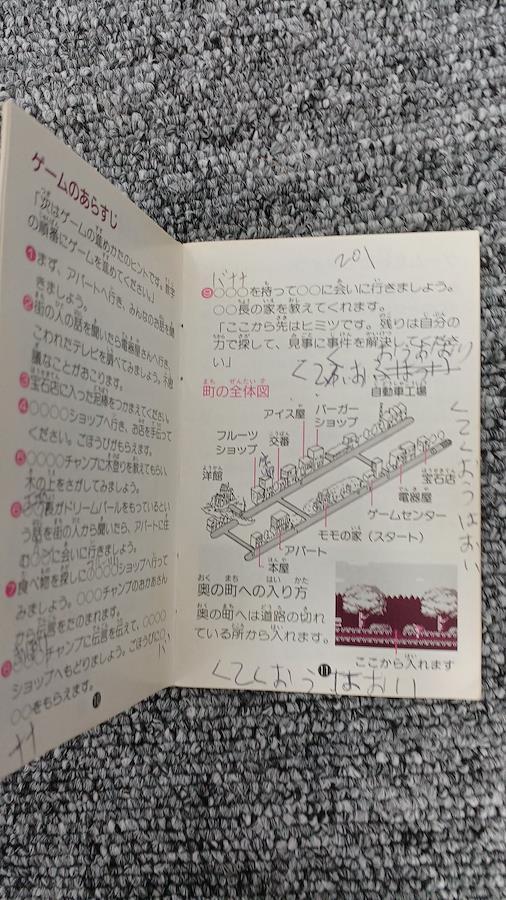 ゲームのあらすじ
「次はゲームの進めかたのヒントです。数字
の順番にゲームを進めてください。」
❶まず、アパートへ行き、みんなのお話を聞
きましょう。
❷街の人の話を聞いたら電器屋さんへ行き、
こわれたテレビを調べてみましょう。不思
議なことがおこります。
❸宝石店に入った泥棒をつかまえてください。
❹○○○○ショップへ行き、お店を手伝って
ください。ごほうびがもらえます。
❺○○○○チャンプに木登りを教えてもらい、
木の上をさがしてみましょう。
❻○○長がドリームボールをもっているとい
う話を街の人から聞いたら、アパートに住
む○ンに会いに行きましょう。
❼食べ物を探しに○○○○ショップへ行って
みましょう。○○○チャンプのおかあさん
から伝言をたのまれます。
❽○○○チャンプに伝言を伝えて、○○○○
ショップへもどりましょう。ごほうびに○
○○をもらえます。
10
201
バナナ
❾○○○を持って○○に会いに行きましょう。
○○長の家を教えてくれます。
「ここから先はヒミツです。残りは自分の
力で探して、見事に事件を解決してくださ
い」
町の全体図
自動車工場
バーガー
ショップ
アイス屋
交番
フルーツ
ショップ
洋館
宝石店
電器屋
ゲームセンター
モモの家（スタート）
アパート
本屋
くてくおうはおい
奥の町への入り方
奥の町へは道路の切れ
ている所から入れます。
ここから入れます
11
くてくおうはおい